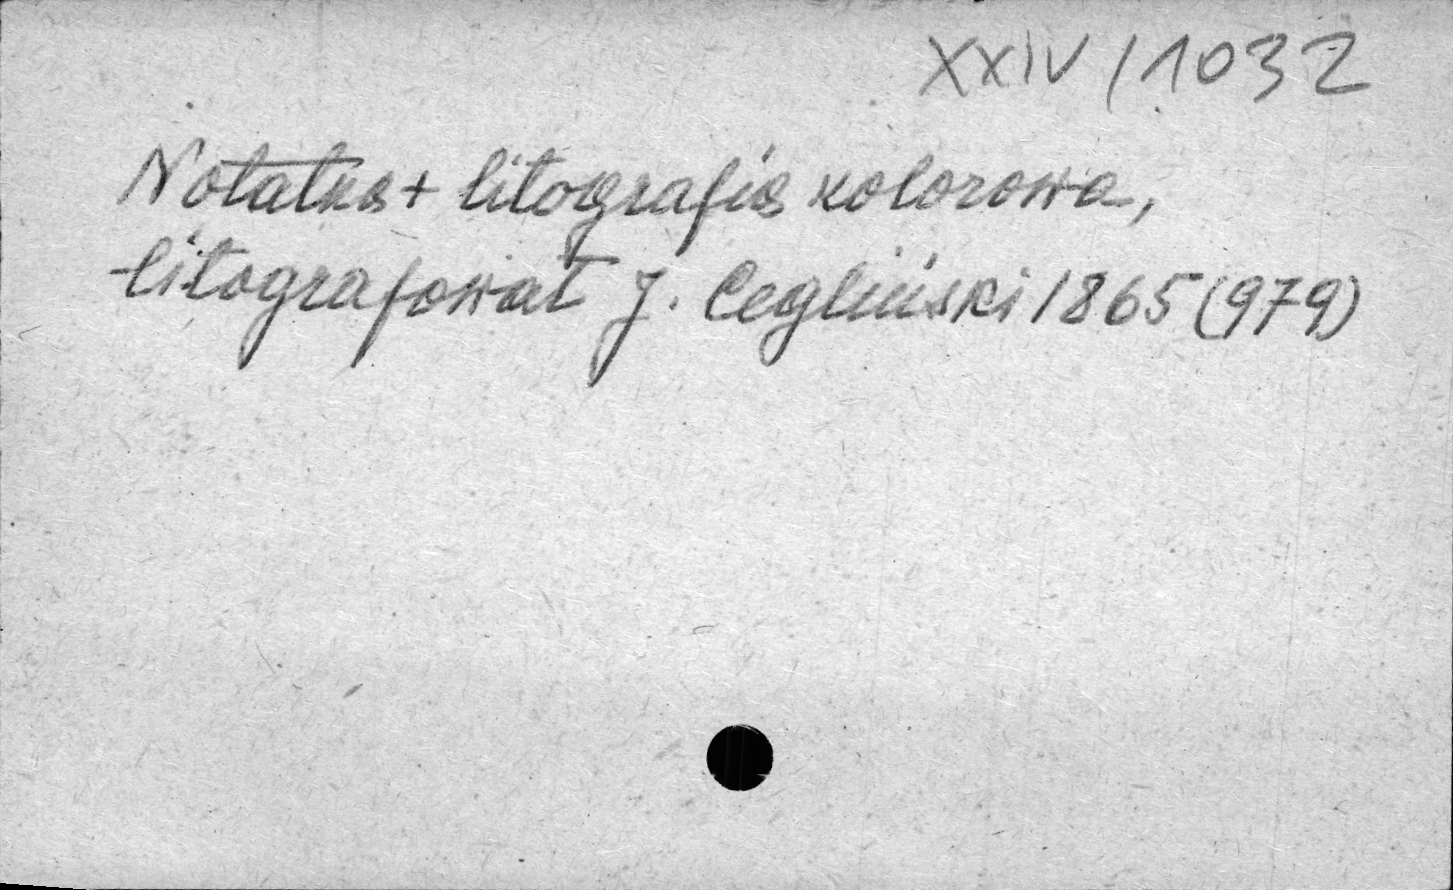 XXIV/1032
Notatka + litografia kolorowa,
litografował J. Cegliński 1865 (979)